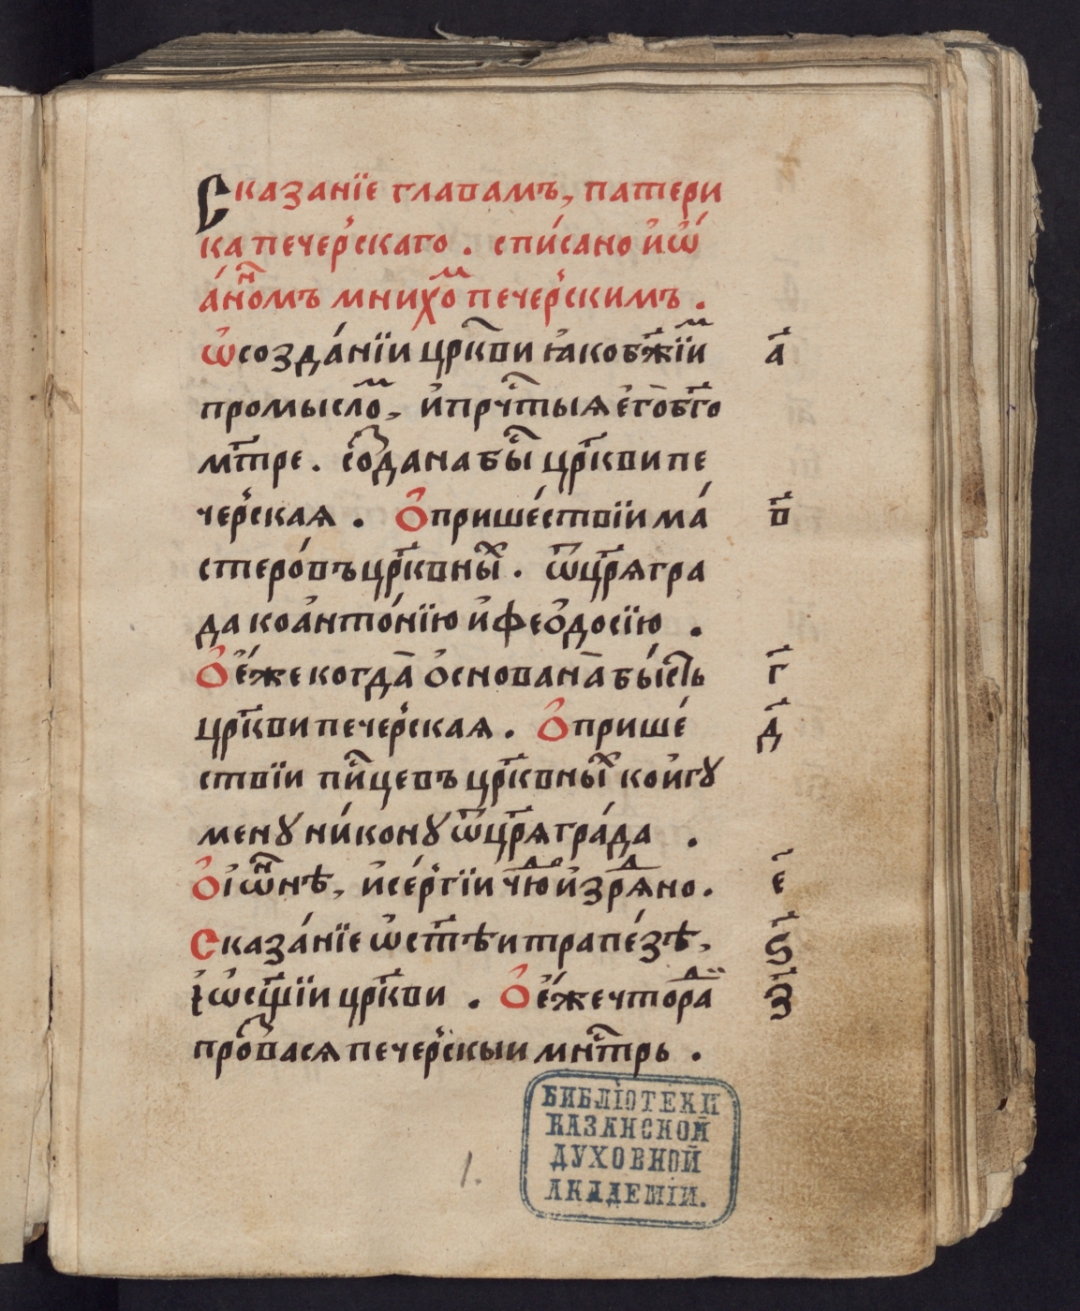 Сказанїе главамъ, патери
ка печерскаго. спи́сано и҆ѡ҆
а́нⷩ҇омъ мнихоⷨ печерскимъ.
Ѡ҆ созда́нїи цр҃кви ꙗ҆ко бж҃їиⷨ а҃
промыслоⷨ, и҆ прчⷭ҇тыѧ є҆го бг҃о
мт҃ре. соⷥдана бы́ⷭ цр҃кви пе
че́рскаѧ. Ѻ҆ прише́ствїи ма́ в҃
стеро́въ цр҃квныⷯ. ѿ цр҃ѧгра
да ко а҆нто́нїю и҆ феѻ҆досїю.
Ѻ҆ є҆́же когда̀ ѻ҆снована̀ бы́сть г҃
цр҃кви пече́рскаѧ. Ѻ҆ прише́ д҃
ствїи пи́сцевъ цр҃квныⷯ ко и҆гꙋ
менꙋ ни́конꙋ ѿ цр҃ѧгра́да.
Ѻ҆ іѡ҆́нⷩ҇ѣ, и҆ се́ргїи чюⷣ и҆зрѧⷣно. е҃
Сказа́нїе ѡ҆ ст҃ѣи трапе́зѣ, ѕ҃
і҆ ѡ҆сщ҃ї́и цр҃кви. Ѻ҆ є҆́же что раⷣ з҃
проⷥвасѧ пече́рскыи мнⷭ҇трь.
БИБЛІОТЕКИ
КАЗАНСКОЙ
ДУХОВНОЙ
АКАДЕМІИ.
1.